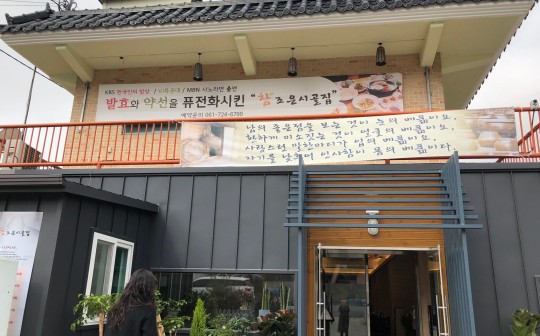 KBS 한국인의 밥상 / MBN 시노라면 출연
발효와 약선을 퓨전화시킨 "참 조은시골집"
예약문의 061-724-0780
남의 좋은점을 보는 것이 눈의 베풂이요,
환하게 미소짓는 것이 얼굴의 베풂이요,
사랑스런 말한마디가 입의 베풂이요,
자기를 낮추어 인사함이 몸의 베풂이다.
참조은시골집